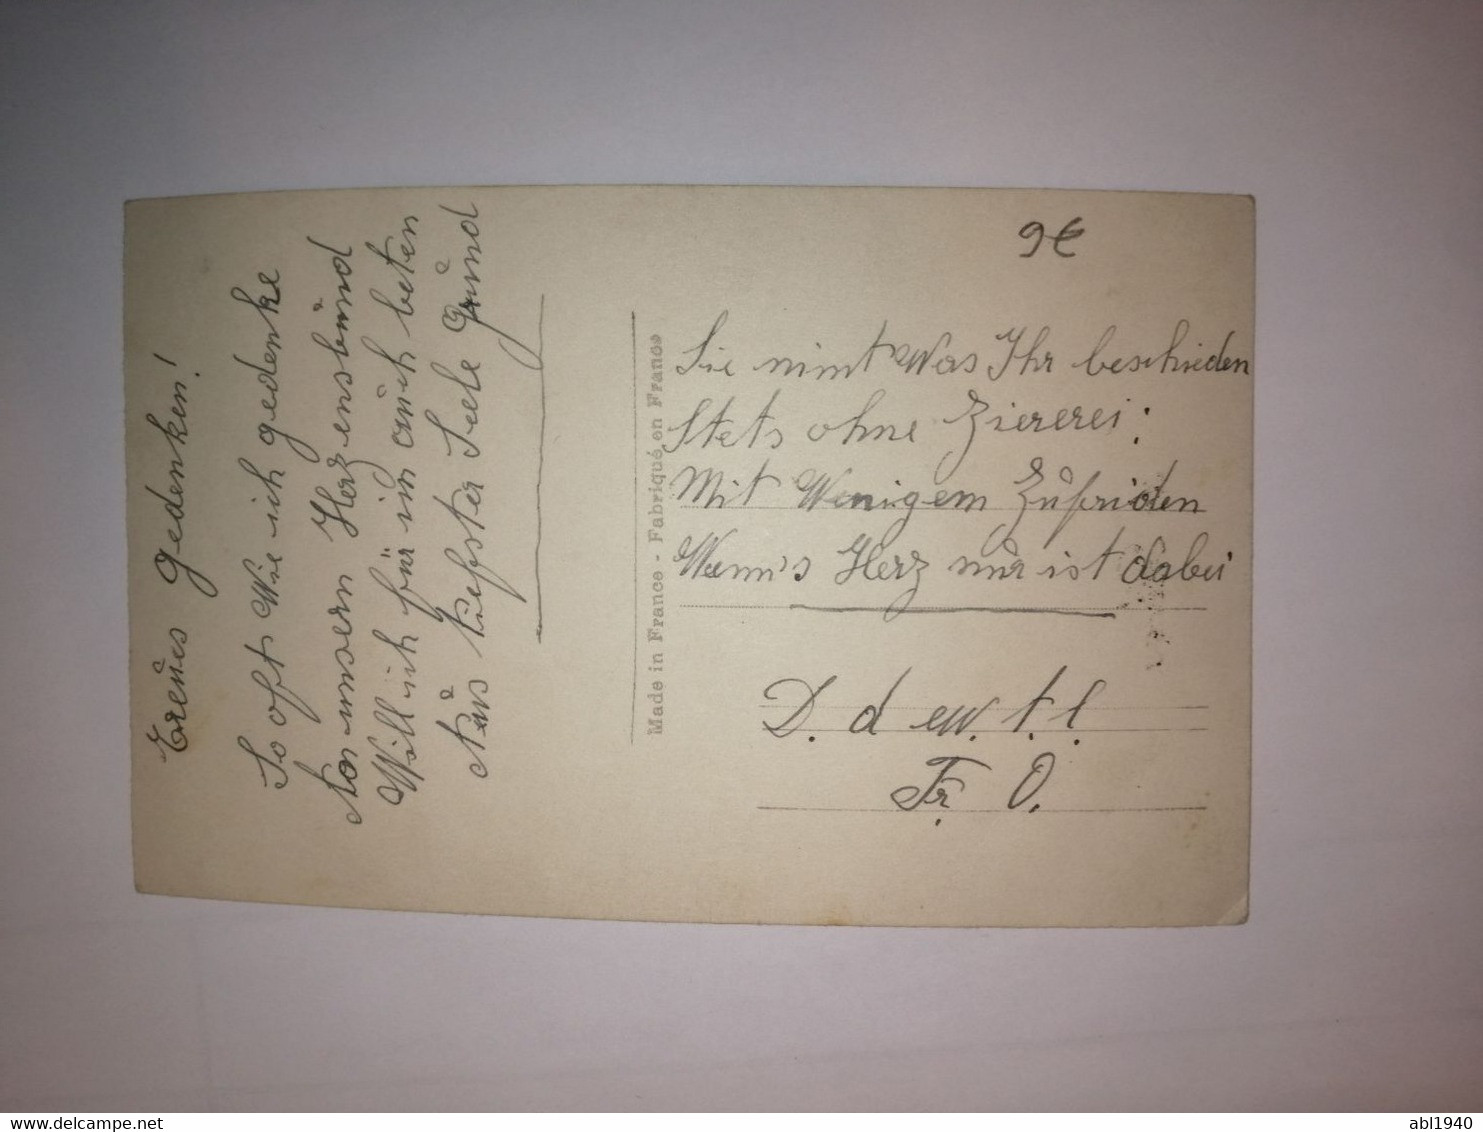 Treues Gedenken!
So oft Wie ich gedenke
An unsern Herzensbund
Will ich für im auch beten
Aus tiefster Seele Grund
Made in France - Fabriqué en France
9€
Sie nimt Was Ihr beschieden
Stets ohne Ziererei:
Mit Wenigem Zufriden
Wenn's Herz nur ist dabei
D. d ew. t. l.
Fr. O.
abl1940